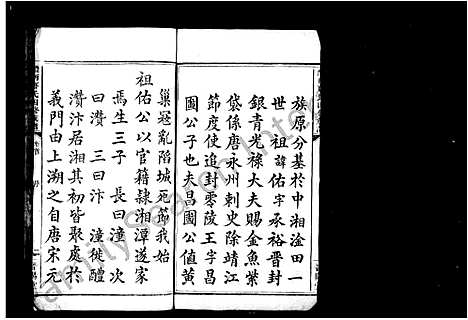 族原分基於中湘淦田一
世祖諱佑字承裕晉封
銀青光祿大夫賜金魚紫
袋係唐永州刺史除靖江
節度使追封零陵王字昌
圖公子也夫昌圖公值黃
巢冦亂陷城死節我始
祖佑公以官籍隸湘潭遂家
焉生三子長曰潼次
曰濽三曰汴潼徙醴
濽汴居湘其初皆聚於
義門由上溯之自唐宋元